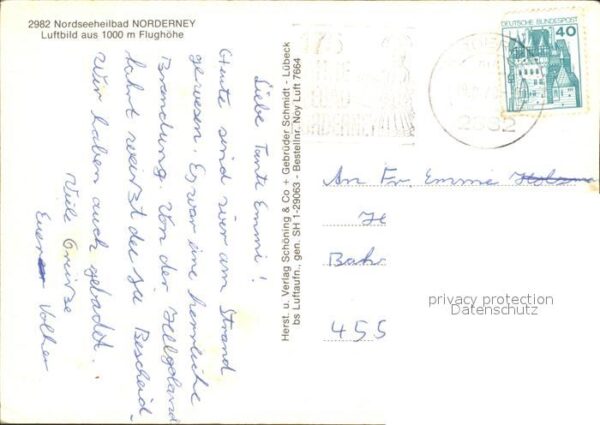 2982 Nordseeheilbad NORDERNEY
Luftbild aus 1000 m Flughöhe
Liebe Tante Emmi!
Heute sind wir am Strand
gewesen. Es war eine herrliche
Brandung. Von der Helgoland
fahrt weißt du ja Bescheid.
Wir haben auch gebadet.
Viele Grüße
Euer Volker
Herst. u. Verlag Schöning & Co + Gebrüder Schmidt - Lübeck
bs Luftaufn., gen. SH 1-29063 - Bestellnr. Noy Luft 7664
DEUTSCHE BUNDESPOST
40
An Fr. Emmi
H
Bahr
455
privacy protection
Datenschutz